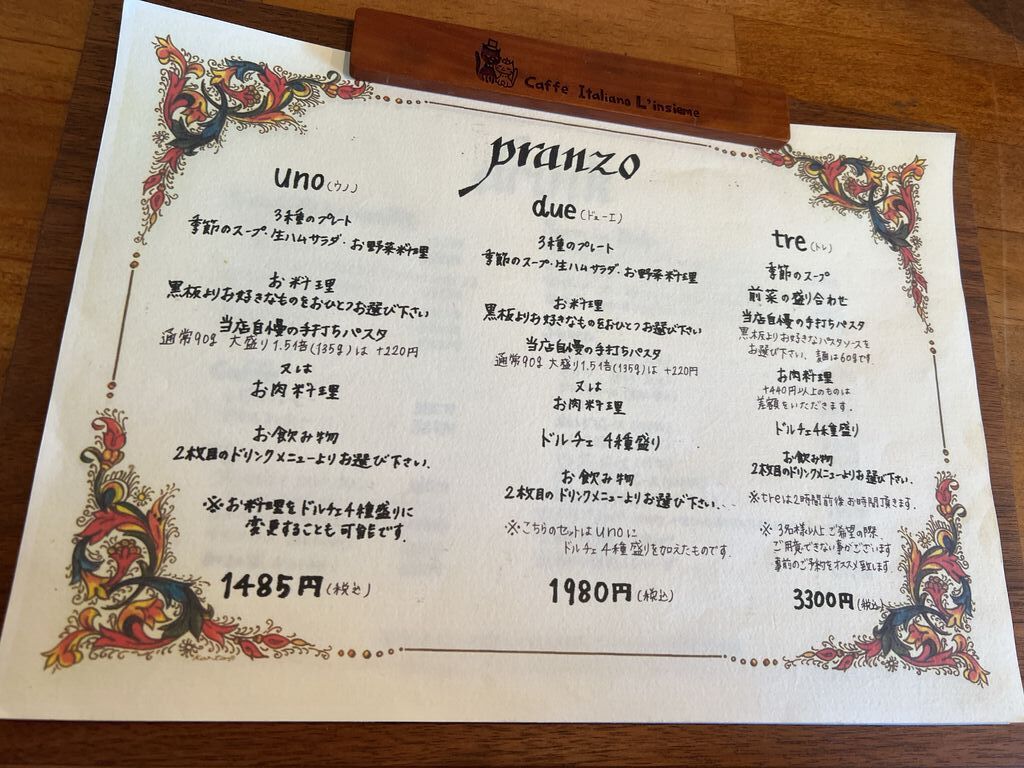 Caffe Italiano L'insieme
pranzo
uno(ウノ)
3種のプレート
季節のスープ・生ハムサラダ・お野菜料理
お料理
黒板よりお好きなものをおひとつお選び下さい
当店自慢の手打ちパスタ
通常90g 大盛り1.5倍(135g)は +220円
又は
お肉料理
お飲み物
2枚目のドリンクメニューよりお選び下さい.
※お料理をドルチェ4種盛りに
変更することも可能です.
1485円(税込)
due(ドゥーエ)
3種のプレート
季節のスープ・生ハムサラダ・お野菜料理
お料理
黒板よりお好きなものをおひとつお選び下さい
当店自慢の手打ちパスタ
通常90g 大盛り1.5倍(135g)は +220円
又は
お肉料理
ドルチェ 4種盛り
お飲み物
2枚目のドリンクメニューよりお選び下さい.
※こちらのセットはunoに
ドルチェ4種盛りを加えたものです.
1980円(税込)
tre(トレ)
季節のスープ
前菜の盛り合わせ
当店自慢の手打ちパスタ
黒板よりお好きなパスタソースを
お選び下さい. 麺は60gです
お肉料理
+440円以上のものは
差額をいただきます.
ドルチェ4種盛り
お飲み物
2枚目のドリンクメニューよりお選び下さい.
※treは2時間前後お時間頂きます.
※3名様以上ご希望の際、
ご用意できない事がございます
事前のご予約をオススメ致します.
3300円(税込)